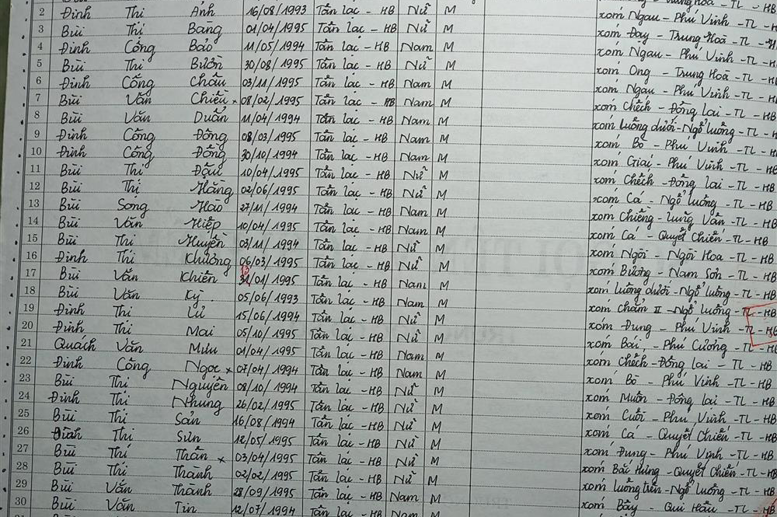 2 Đinh Thị Ánh 16/08/1993 Tân Lạc - HB Nữ M
3 Bùi Thị Bang 01/04/1995 Tân Lạc - HB Nữ M xóm Ngau - Phú Vinh - TL - HB
4 Đinh Công Bảo 11/05/1994 Tân Lạc - HB Nam M xóm Đay - Trung Hoà - TL - HB
5 Bùi Thị Bướn 30/08/1995 Tân Lạc - HB Nữ M xóm Ngau - Phú Vinh - TL - HB
6 Đinh Công Châu 03/11/1995 Tân Lạc - HB Nam M xóm Ong - Trung Hoà - TL - HB
7 Bùi Văn Chiều x 08/02/1995 Tân Lạc - HB Nam M xóm Ngau - Phú Vinh - TL - HB
8 Bùi Văn Duẩn 11/04/1994 Tân Lạc - HB Nam M xóm Chếch - Đông Lai - TL - HB
9 Đinh Công Đông 08/03/1995 Tân Lạc - HB Nam M xóm Luông dưới - Ngổ Luông - TL - HB
10 Đinh Công Đồng 30/10/1994 Tân Lạc - HB Nam M xóm Bò - Phú Vinh - TL - HB
11 Bùi Thị Đậu 10/04/1995 Tân Lạc - HB Nữ M xóm Giai - Phú Vinh - TL - HB
12 Bùi Thị Hằng 02/06/1995 Tân Lạc - HB Nữ M xóm Chếch - Đông Lai - TL - HB
13 Bùi Song Hào 27/11/1994 Tân Lạc - HB Nam M xóm Cá - Ngổ Luông - TL - HB
14 Bùi Văn Hiệp 10/04/1995 Tân Lạc - HB Nam M xóm Chiềng - Lũng Vân - TL - HB
15 Bùi Thị Huyền 03/11/1994 Tân Lạc - HB Nữ M xóm Cá - Quyết Chiến - TL - HB
16 Đinh Thị Khương 06/03/1995 Tân Lạc - HB Nữ M xóm Ngòi - Ngòi Hoa - TL - HB
17 Bùi Văn Khiên /01/1995 Tân Lạc - HB Nam M xóm Bương - Nam Sơn - TL - HB
18 Bùi Văn Kỷ 05/06/1993 Tân Lạc - HB Nam M xóm Luông dưới - Ngổ Luông - TL - HB
19 Đinh Thị Lư 15/06/1994 Tân Lạc - HB Nữ M xóm Chám II - Ngổ Luông - TL - HB
20 Đinh Thị Mai 05/10/1995 Tân Lạc - HB Nữ M xóm Đung - Phú Vinh - TL - HB
21 Quách Văn Mưu 01/04/1995 Tân Lạc - HB Nam M xóm Bái - Phú Cường - TL - HB
22 Đinh Công Ngọc x 07/04/1994 Tân Lạc - HB Nam M xóm Chếch - Đông Lai - TL - HB
23 Bùi Thị Nguyên 08/10/1994 Tân Lạc - HB Nữ M xóm Bò - Phú Vinh - TL - HB
24 Đinh Thị Nhung 26/02/1995 Tân Lạc - HB Nữ M xóm Muôn - Đông Lai - TL - HB
25 Bùi Thị Sản 16/08/1994 Tân Lạc - HB Nữ M xóm Cuôi - Phú Vinh - TL - HB
26 Đinh Thị Sún 12/05/1995 Tân Lạc - HB Nữ M xóm Cá - Quyết Chiến - TL - HB
27 Bùi Thị Thân x 03/04/1995 Tân Lạc - HB Nữ M xóm Đung - Phú Vinh - TL - HB
28 Bùi Thị Thành 02/02/1995 Tân Lạc - HB Nữ M xóm Bắc Hưng - Quyết Chiến - TL - HB
29 Bùi Văn Thành 28/09/1995 Tân Lạc - HB Nam M xóm Luông trên - Ngổ Luông - TL - HB
30 Bùi Văn Tín 12/07/1994 Tân Lạc - HB Nam M xóm Bậy - Qui Hậu - TL - HB